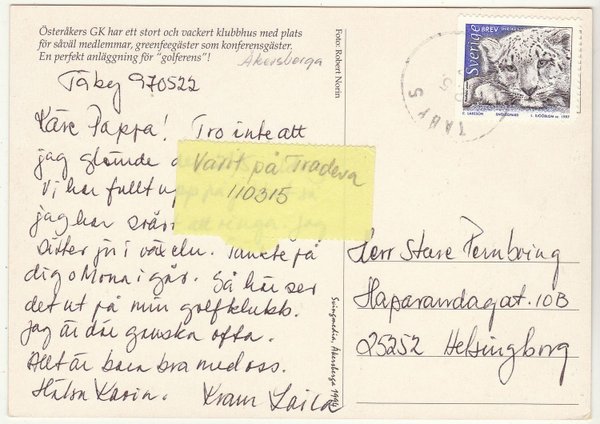 Österåkers GK har ett stort och vackert klubbhus med plats
för såväl medlemmar, greenfeegäster som konferensgäster.
En perfekt anläggning för "golferens"!
Åkersberga
Foto: Robert Norin
Täby 970522
Käre Pappa! Tro inte att
jag glömde
Varit på Tradera
110315
Vi har fullt upp
jag har svårt att ringa. Jag
sitter ju i växeln. Tänkte på
dig o Mona igår. Så här ser
det ut på min golfklubb.
Jag är där ganska ofta.
Allt är bara bra med oss.
Hälsn Karin. Kram Laila
Svingmedia, Åkersberga 1994
Sverige
BREV
TÄBY 5
1997
Herr Sture
Haparandagat. 10B
25252 Helsingborg